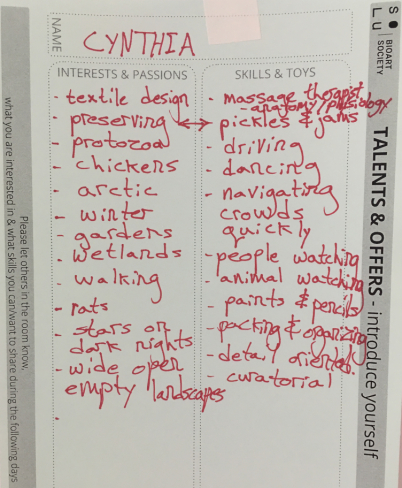 NAME
CYNTHIA
INTERESTS & PASSIONS
- textile design
- preserving ↔
- protozoa
- chickens
- arctic
- winter
- gardens
- wetlands
- walking
- rats
- stars on
dark nights
- wide open
empty landscapes
-
SKILLS & TOYS
- massage therapist
- anatomy/physiology
pickles & jams
- driving
- dancing
- navigating
crowds
quickly
- people watching
- animal watching
- paints & pencils
- packing & organizing
- detail oriented.
- curatorial
SOLU
BIOART
SOCIETY
TALENTS & OFFERS - introduce yourself
Please let others in the room know,
what you are interested in & what skills you can/want to share during the following days